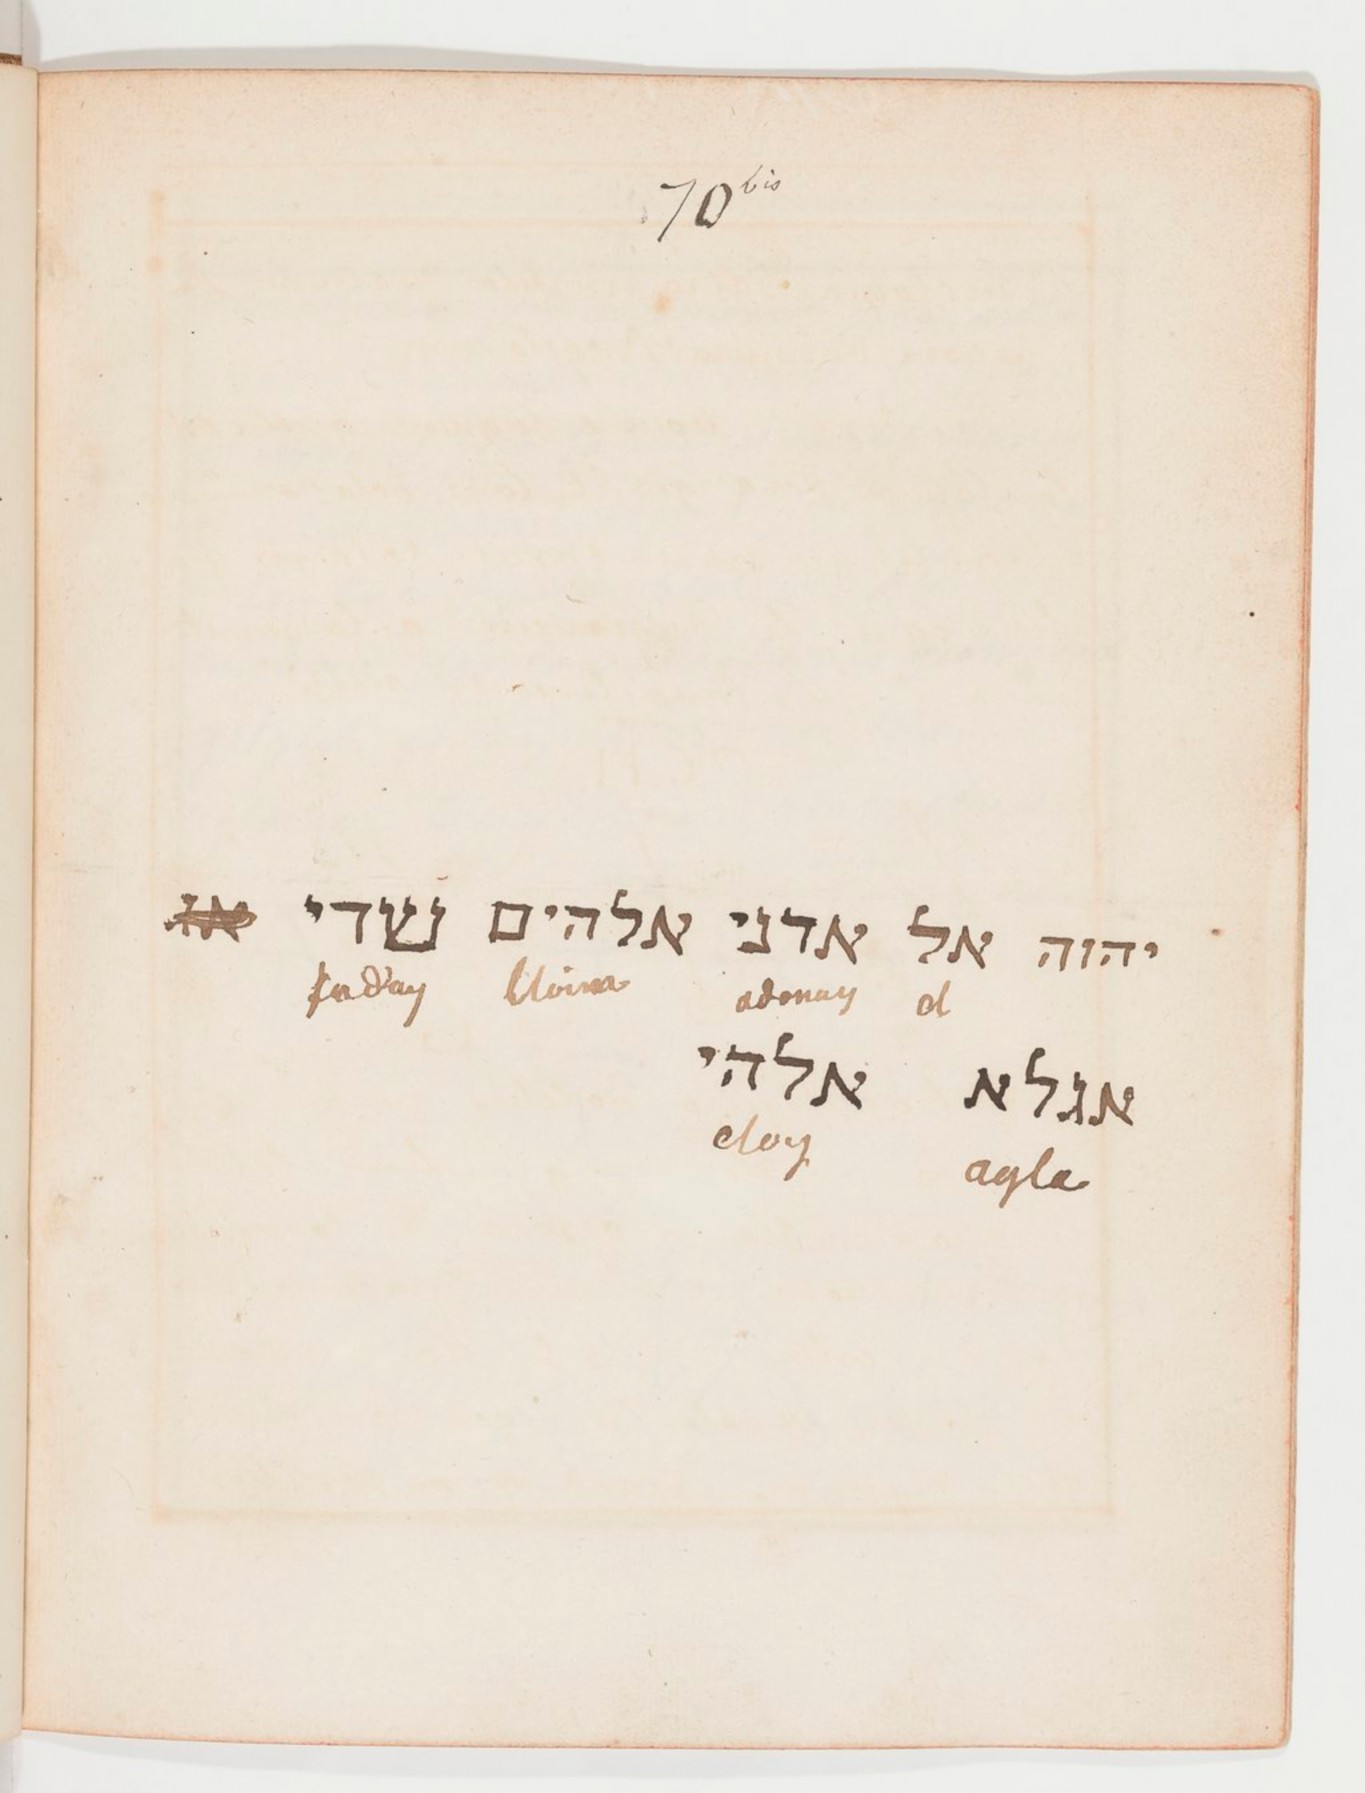 70 bis
יהוה אל אדני אלהים שדי
el adonay Eloim saday
אגלא אלהי
agla eloy